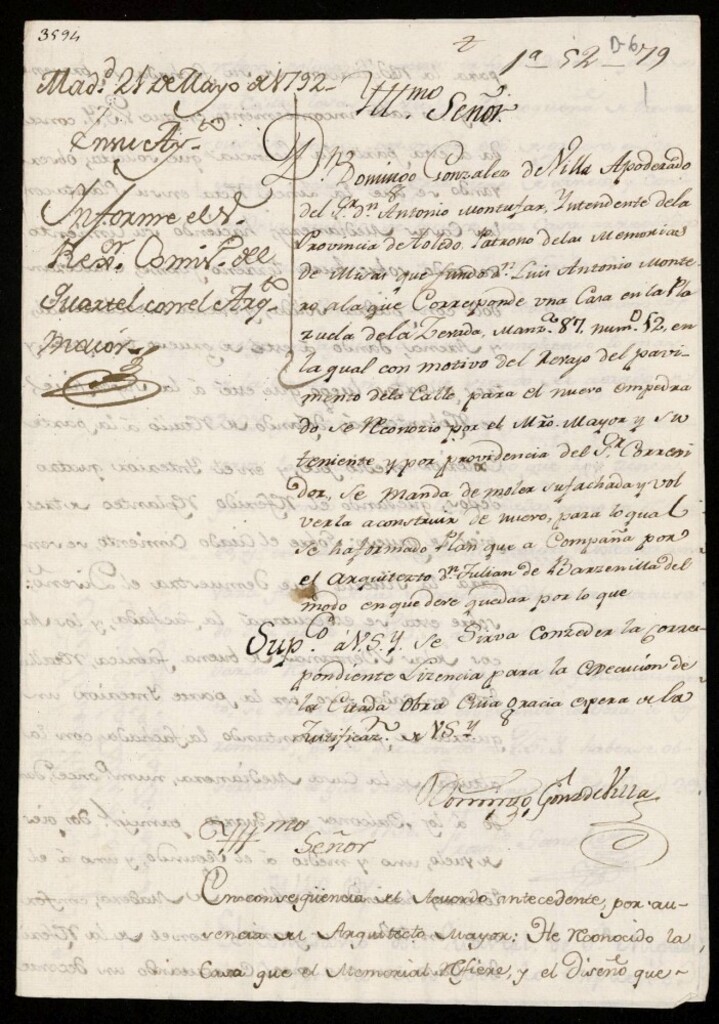 3594
1ª 52 79
D-6
1
Madᵈ 21 de Mayo de 1792
En su Ayᵗᵒ
Informe el S.
Rexᵒʳ Comisᵒ del
Quartel con el Arqᵗᵒ
maiór
Illᵐᵒ Señor.
Dⁿ Domingo Gonzalez de Villa Apoderado
del Sʳ dⁿ Antonio Montufar, Yntendente dela
Provincia de Toledo. Patrono delas Memorias
de Misas que fundo dⁿ Luis Antonio Monte
ro, ala que Corresponde vna Casa en la Pla
zuela dela Zevada, Manzᵃ 87, numᵒ 12, en
la qual con motivo del Revajo del pavi
mento dela Calle, para el nuevo empedra
do, se Reconozio por el Mrᵒ Mayor y su
teniente y por providencia del Sʳ Correxi
dor, se manda demoler su fachada y vol
verla a construir de nuevo, para lo qual
se ha formado Plan que a Compaña por
el Arquitecto dⁿ Julian de Barzenilla del
modo en que deve quedar por lo que
Supᶜᵒ á V.S.Y. se Sirva Conzeder la Corres
pondiente Lizencia para la execución de
la Citada Obra Cuia Gracia espera de la
Justificazⁿ de V.S.Y
Domingo Gonzˡ de Villa
Illᵐᵒ Señor
En conseqüencia del Acuerdo antecedente, por au-
sencia del Arquitecto Mayor: He Reconocido la
Casa que el Memorial Refiere, y el Diseño que-